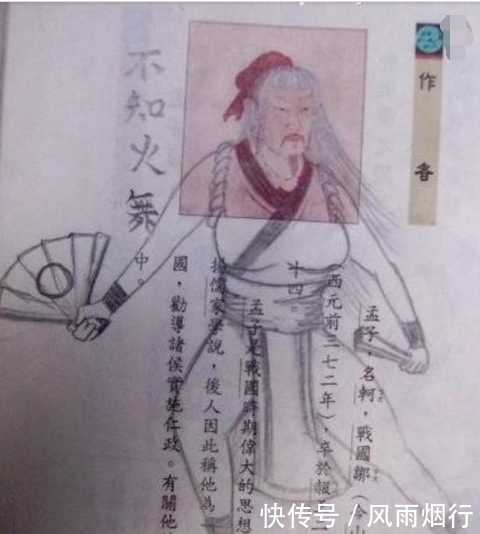 作者
孟子，名軻，戰國鄒（今山
西元前三七二年），卒於
十四。
孟子是戰國時期偉大的思想
揚儒家學說，後人因此稱他為
國，勸導諸侯實施仁政。有關他
中。
不知火舞
快传号 / 风雨烟行